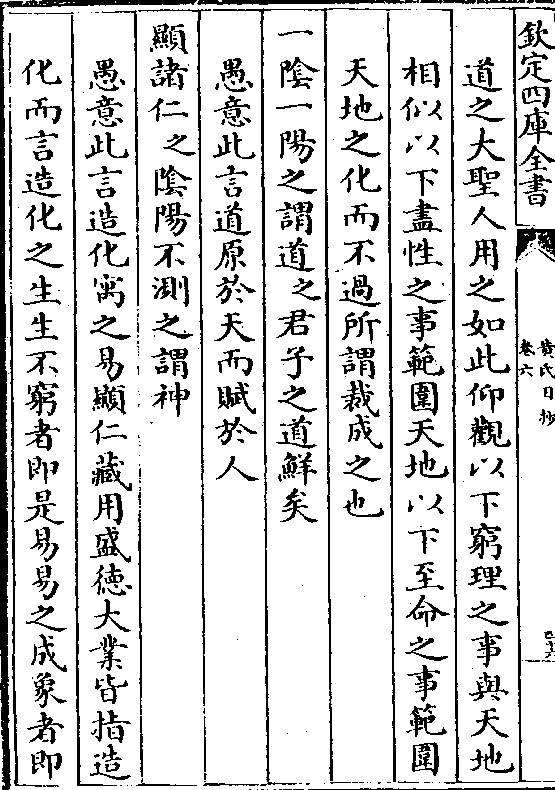 欽定四庫全書
黄氏日抄
卷六
道之大聖人用之如此仰觀以下窮理之事與天地
相似以下盡性之事範圍天地以下至命之事範圍
天地之化而不過所謂裁成之也
一陰一陽之謂道之君子之道鮮矣
愚意此言道原於天而賦於人
顯諸仁之陰陽不測之謂神
愚意此言造化寓之易顯仁藏用盛徳大業皆指造
化而言造化之生生不窮者即是易易之成象者即